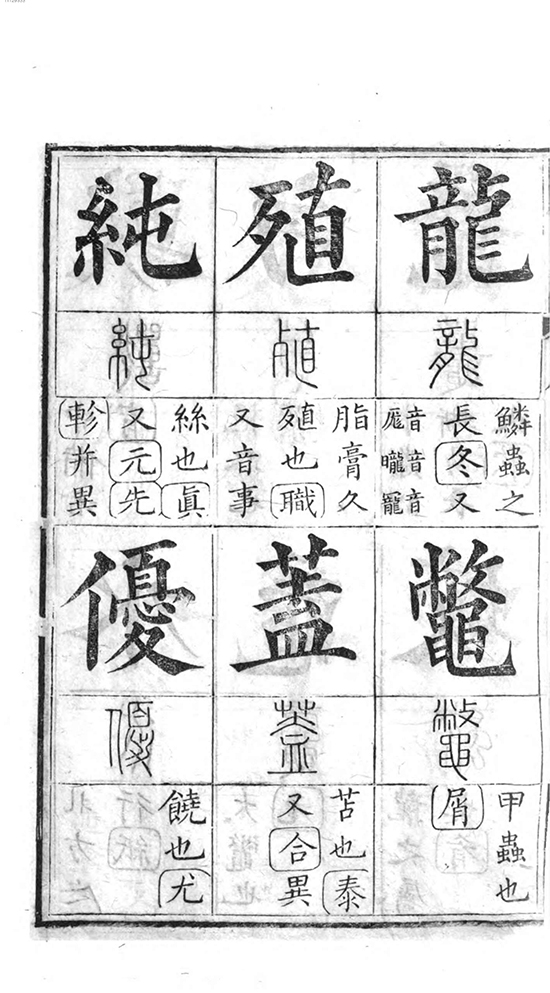 龍
龍
鱗蟲之
長冬又
音音音
厖曨寵
殖
殖
脂膏久
殖也職
又音事
純
純
絲也眞
又元先
軫并異
鼈
鼈
甲蟲也
屑
蓋
蓋
苫也泰
又合異
優
優
饒也尤